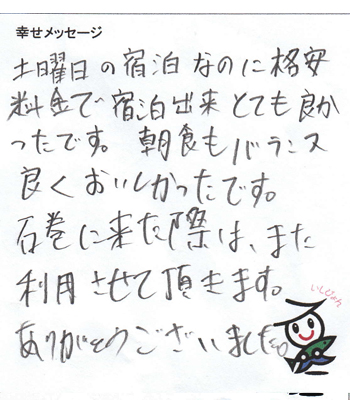 幸せメッセージ
土曜日の宿泊なのに格安
料金で宿泊出来とても良か
ったです。朝食もバランス
良くおいしかったです。
石巻に来た際は、また
利用させて頂きます。
ありがとうございました。